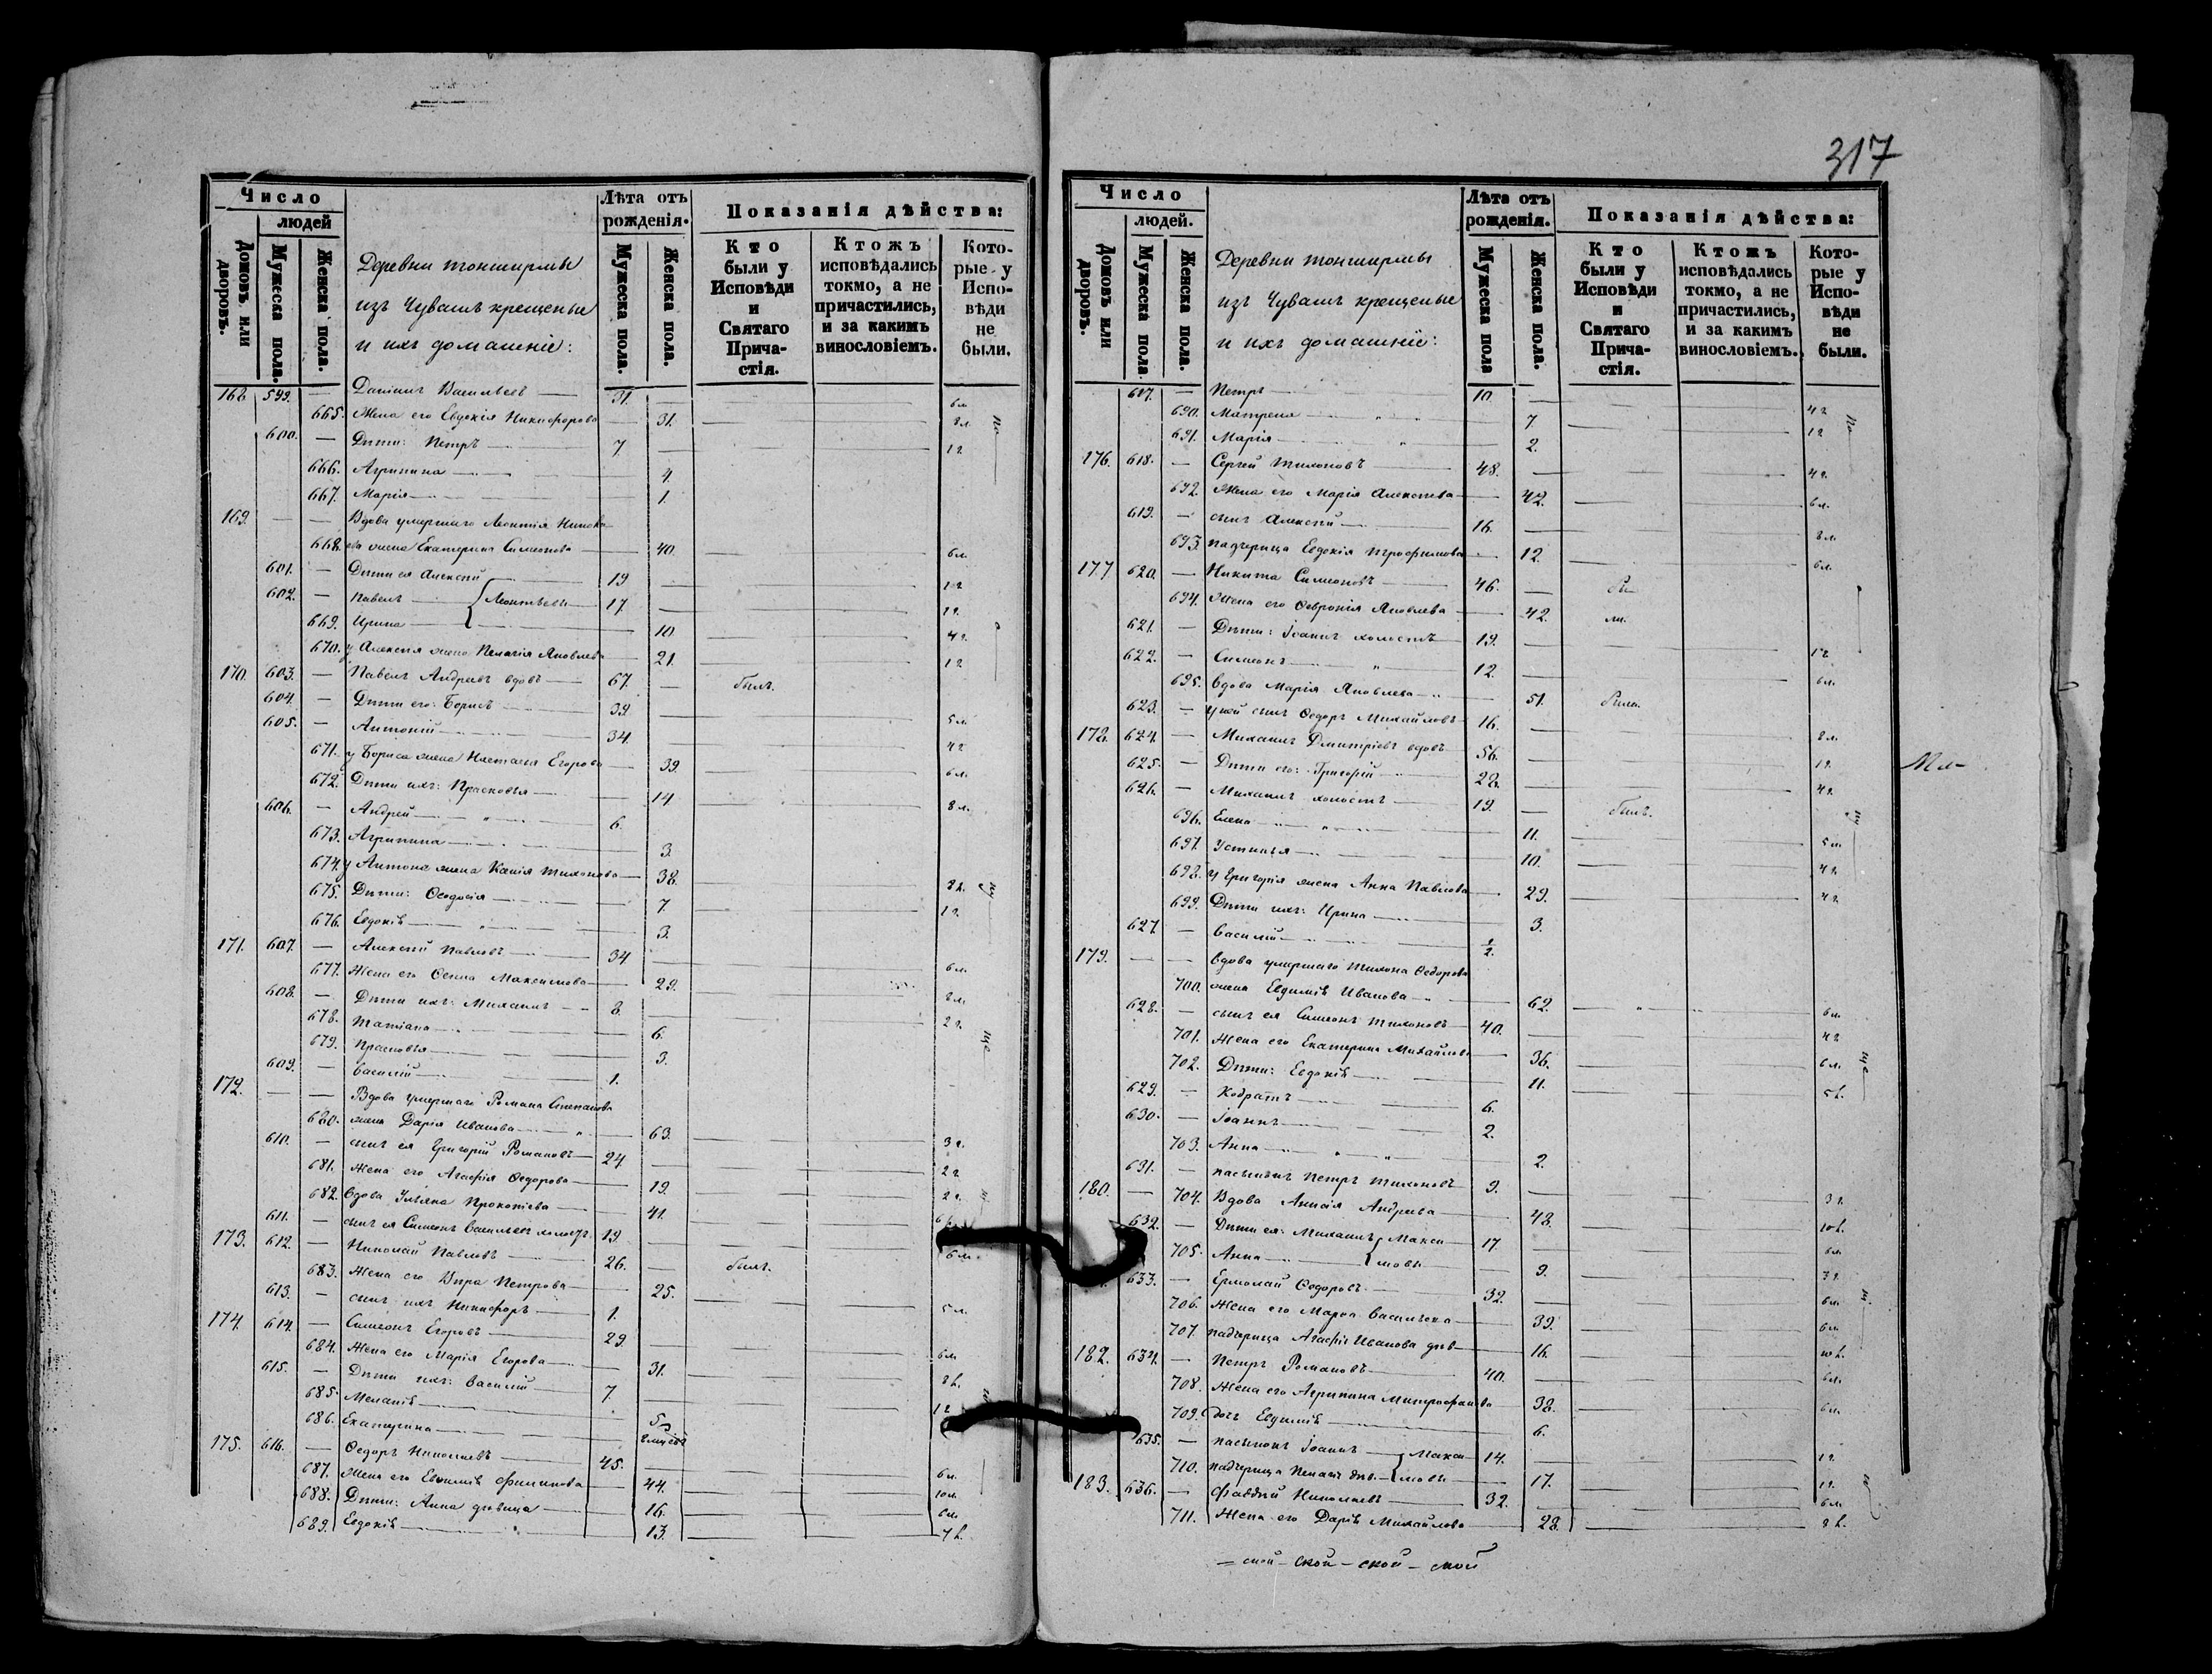 317
Число
людей
Домовъ или дворовъ.
Мужеска пола.
Женска пола.
Деревни тонширмы
изъ Чувашъ крещеные
и ихъ домашніе:
Лѣта отъ рожденія.
Мужеска пола.
Женска пола.
Показанія дѣйства:
Кто были у Исповѣди и Святаго Причастія.
Ктожъ исповѣдались токмо, а не причастились, и за какимъ винословіемъ.
Которые у Исповѣди не были.
168 599. — Данiилъ Васильевъ 31.
665. Жена его Евдокія Никифорова 31.
600. — Дѣти: Петръ 7
666. Агрипина 4.
667. Марія 1.
169. — — Вдова умершаго Леонтія
668. жена Екатерина Симеонова 40.
601. — Дѣти ея Алексій 19
602. — Павелъ Леонтьевы 17
669. Ирина 10
670. у Алексія жена Пелагія Яковлева 21.
170. 603. — Павелъ Андреевъ вдовъ 67. — былъ.
604. — Дѣти его: Борисъ 39.
605. — Антоній 34.
671. у Бориса жена Настасья Егорова 39.
672. Дѣти ихъ: Прасковья 14
606. — Андрей 6.
673. Агрипина 3.
674. у Антона жена Ксенія Тихонова 38.
675. Дѣти: Ѳеодосія 7.
676. Евдокія 3.
171. 607. — Алексій Павловъ 34
677. Жена его Максимова 29.
608. — Дѣти ихъ: Михаилъ 8.
678. Татіана 6.
679. Прасковья 3.
609. — Василій 1.
172. — — Вдова умершаго Романа Степанова
680. жена Дарія Иванова 63.
610. — сынъ ея Григорій Романовъ 24
681. Жена его Агафія Ѳедорова 19.
682. Вдова Ульяна Прокопіева 41.
611. — сынъ ея Симеонъ Васильевъ холостъ 19.
173. 612. — Николай Павловъ 26. — былъ.
683. Жена его Вѣра Петрова 25.
613. — сынъ ихъ Никифоръ 1.
174. 614. — Симеонъ Егоровъ 29.
684. Жена его Марія Егорова 31.
615. — Дѣти ихъ: Василій 7.
685. Меланія 5
686. Екатерина
175. 616. — Ѳедоръ Николаевъ 45.
687. Жена его Евѳимія Филипова 44.
688. Дѣти: Анна дѣвица 16.
689. Евдокія 13.
Число
людей.
Домовъ или дворовъ.
Мужеска пола.
Женска пола.
Деревни тонширмы
изъ Чувашъ крещеные
и ихъ домашніе:
Лѣта отъ рожденія.
Мужеска пола
Женска пола.
Показанія дѣйства:
Кто были у Исповѣди и Святаго Причастія.
Ктожъ исповѣдались токмо, а не причастились, и за какимъ винословіемъ.
Которые у Исповѣди не были.
617. — Петръ 10.
690. Матрена 7
691. Марія 2.
176. 618. — Сергей Тихоновъ 48.
692. Жена его Марія Алексѣева 42.
619. — сынъ Алексѣй 16.
693. падчерица Евдокія Трофимова 12.
177 620. — Никита Симеоновъ 46.
694. Жена его Ѳевронія Яковлева 42.
621. — Дѣти: Іоаннъ холостъ 19.
622. — Симеонъ 12.
695. Вдова Марія Яковлева 51. была.
623. — у ней сынъ Ѳедоръ Михайловъ 16.
178. 624. — Михаилъ Дмитріевъ вдовъ 56.
625. — Дѣти его: Григорій 28.
626. — Михаилъ холостъ 19. — былъ.
696. Елена 11.
697. Устинья 10.
698. у Григорія жена Анна Павлова 29.
699. Дѣти ихъ: Ирина 3.
627. — Василій 1/2.
179. — — Вдова умершаго Тихона Ѳедорова
700. жена Евдимія Иванова 62.
628. — сынъ ея Симеонъ Тихоновъ 40.
701. Жена его Екатерина Михайлова 36.
702. Дѣти: Евдокія 11.
629. — Кодратъ 6.
630. — Іоаннъ 2.
703. Анна 2.
631. — пасынокъ Петръ Тихоновъ 9.
180. — 704. Вдова Анисія Андреева 48.
632. — Дѣти ея: Михаилъ Макси- 17.
705. Анна мовы 9.
633. — Ермолай Ѳедоровъ 32.
706. Жена его Марѳа Васильева 39.
707. падчерица Агафія Иванова дѣв 16.
182. 634. — Петръ Романовъ 40.
708. Жена его Агрипина Митрофанова 38.
709. дочь Евдимія 6.
635. — пасынокъ Іоаннъ Макси- 14.
710. падчерица дѣв. мовы 17.
183. 636. — Фаддей Николаевъ 32.
711. Жена его Дарія Михайлова 28.